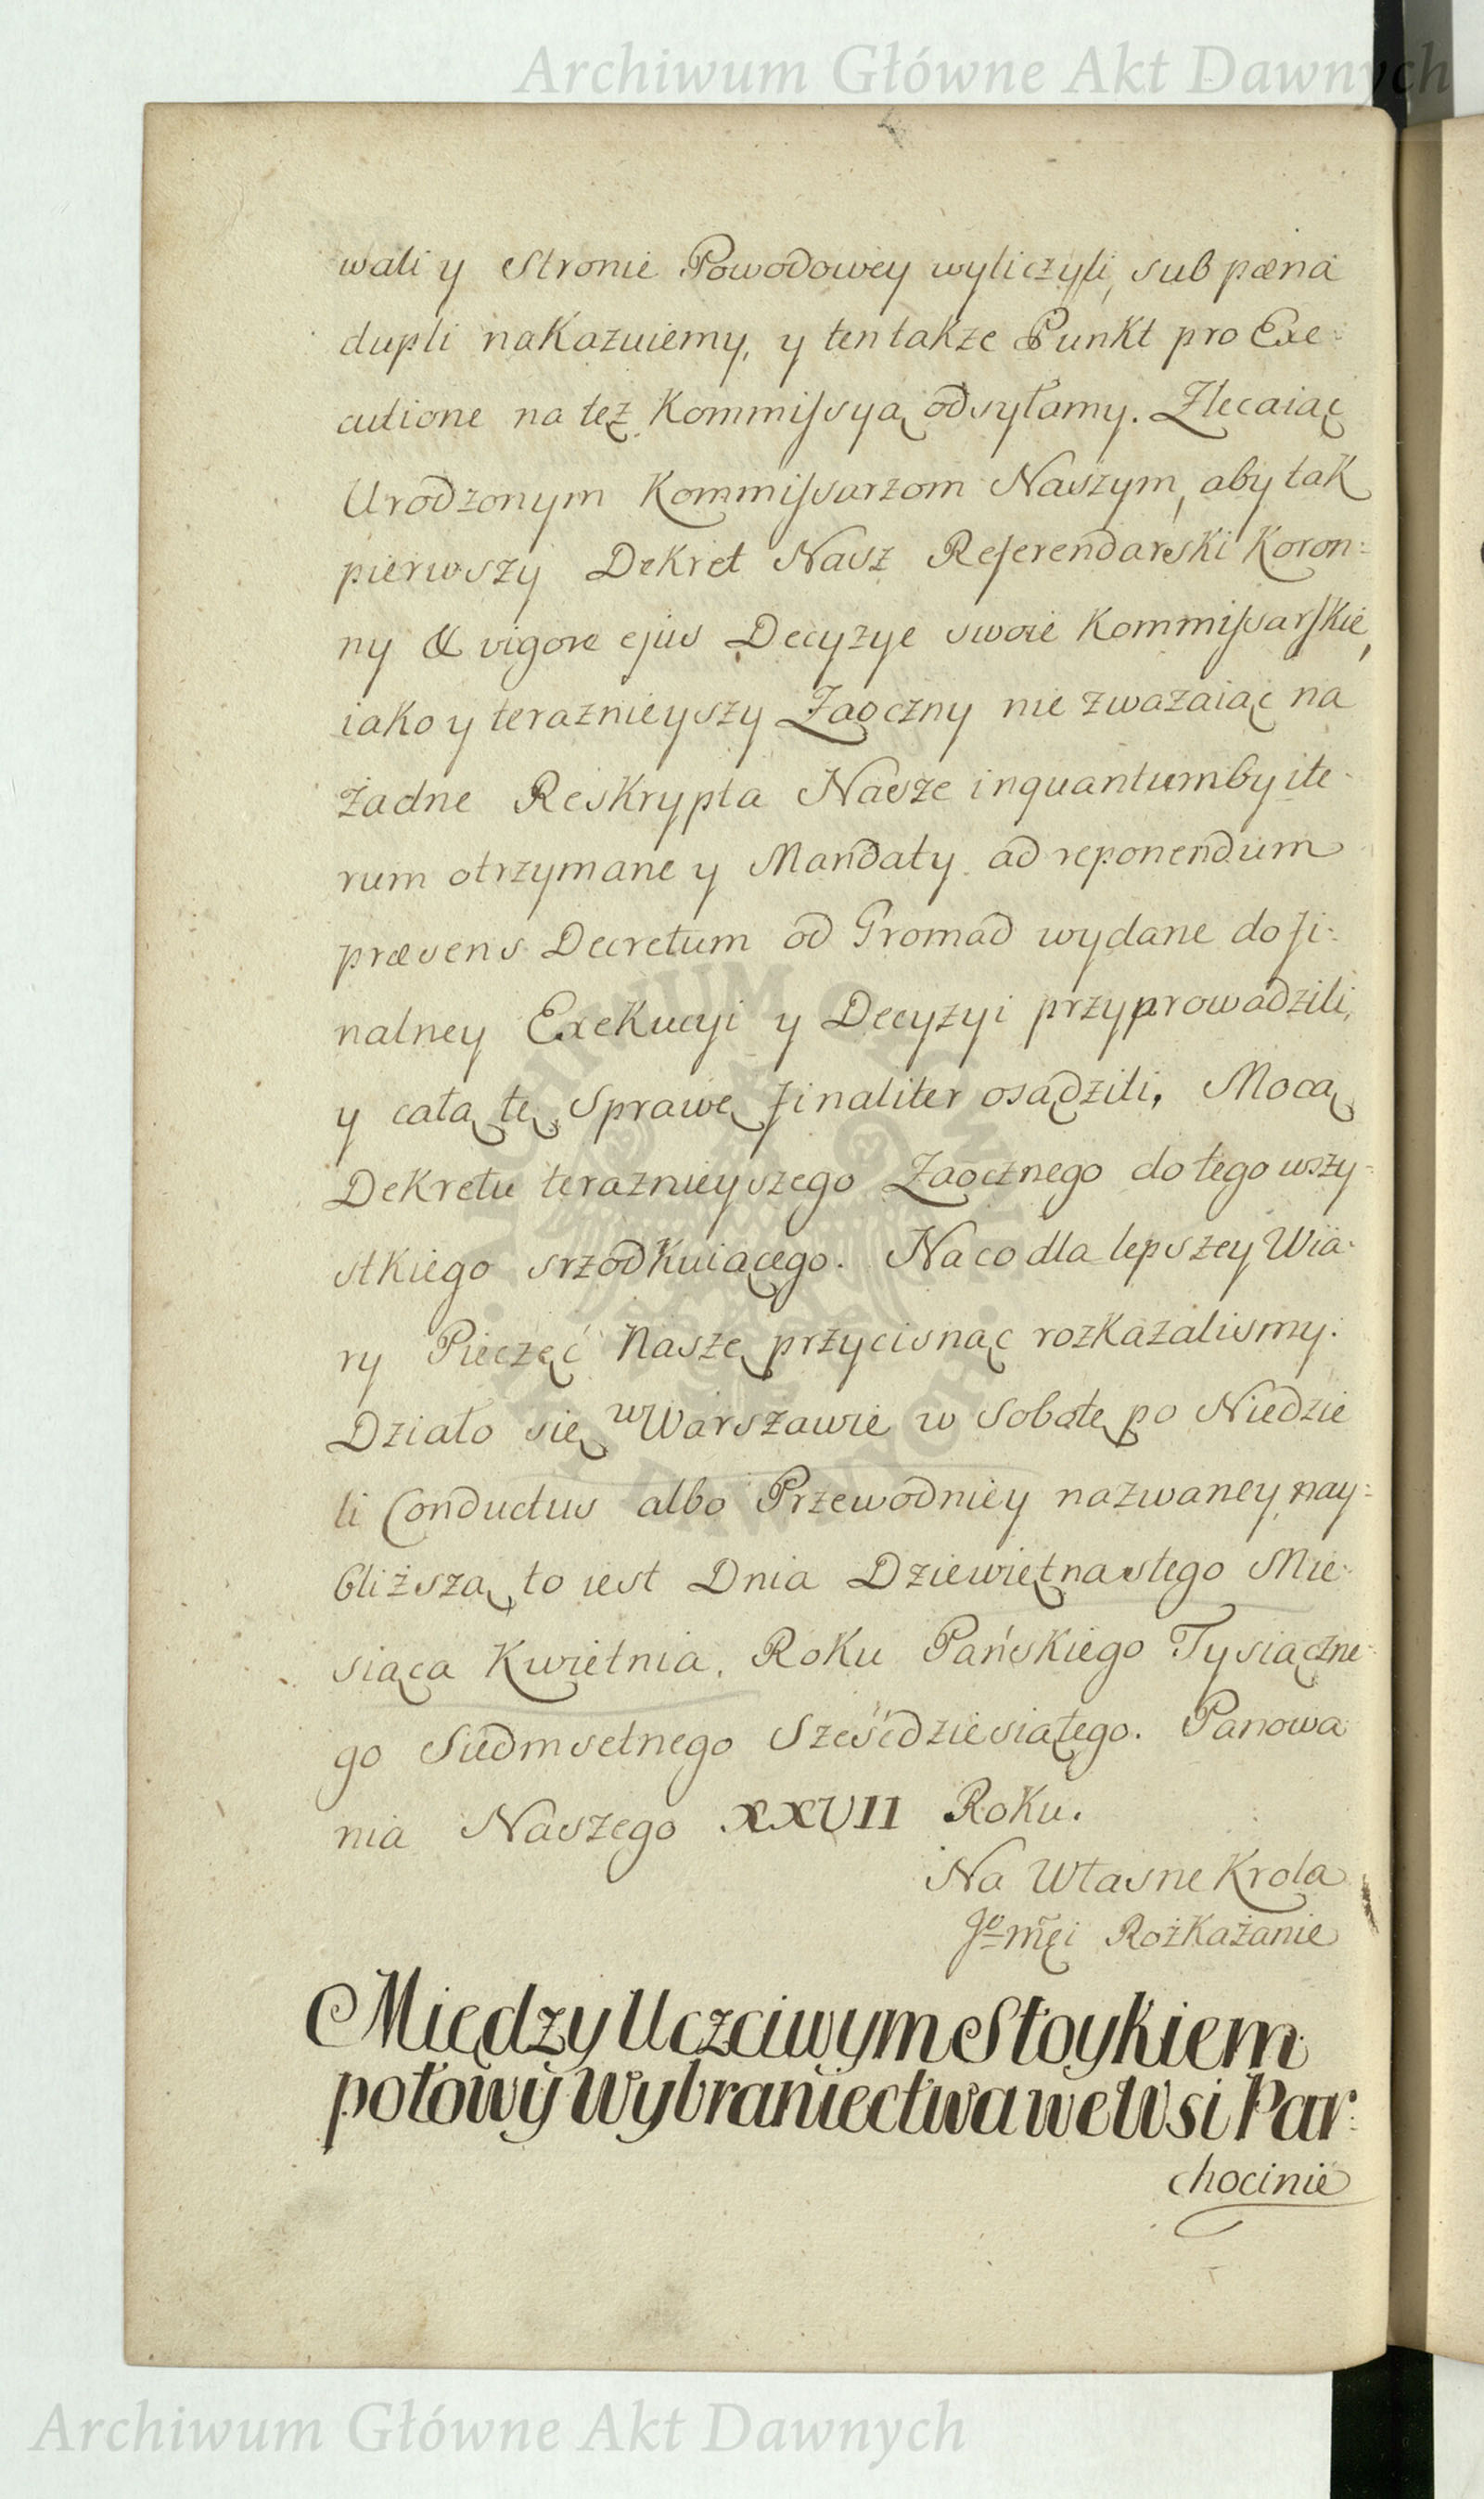 Archiwum Główne Akt Dawnych
wali y Stronie Powodowey wyliczyli, sub pæna
dupli nakazuiemy, y ten także Punkt pro Exe:
cutione na tęż Kommissyą odsyłamy. Zlecaiąc
Urodzonym Kommissarzom Naszym, aby tak
pierwszy Dekret Nasz Referendarski Koron:
ny & vigore ejus Decyzye swoie Kommissarskie,
iako y teraznieyszy Zaoczny nie zważaiąc na
żadne Reskrypta Nasze inquantumby ite-
rum otrzymane y Mandaty ad reponendum
præsens Decretum od Gromad wydane do fi:
nalney Exekucyi y Decyzyi przyprowadzili,
y całą tę Sprawę finaliter osądzili, Mocą
Dekretu teraznieyszego Zaocznego do tego wszy-
stkiego srzodkuiącego. Na co dla lepszey Wia-
ry Pieczęć Naszę przycisnąć rozkazalismy.
Działo się w Warszawie w Sobotę po Niedzie
li Conductus albo Przewodniey nazwaney nay:
bliższą, to iest Dnia Dziewiętnastego Mie-
siąca Kwietnia. Roku Pańskiego Tysiączne-
go Siedmsetnego Sześćdziesiątego. Panowa
nia Naszego XXVII Roku.
Na Własne Krola
Jo mći Rożkażanie
Między Uczciwym Stoykiem
połowy Wybraniectwa we Wsi Par:
chocinie
ARCHIWUM GŁÓWNE AKT DAWNYCH
Archiwum Główne Akt Dawnych